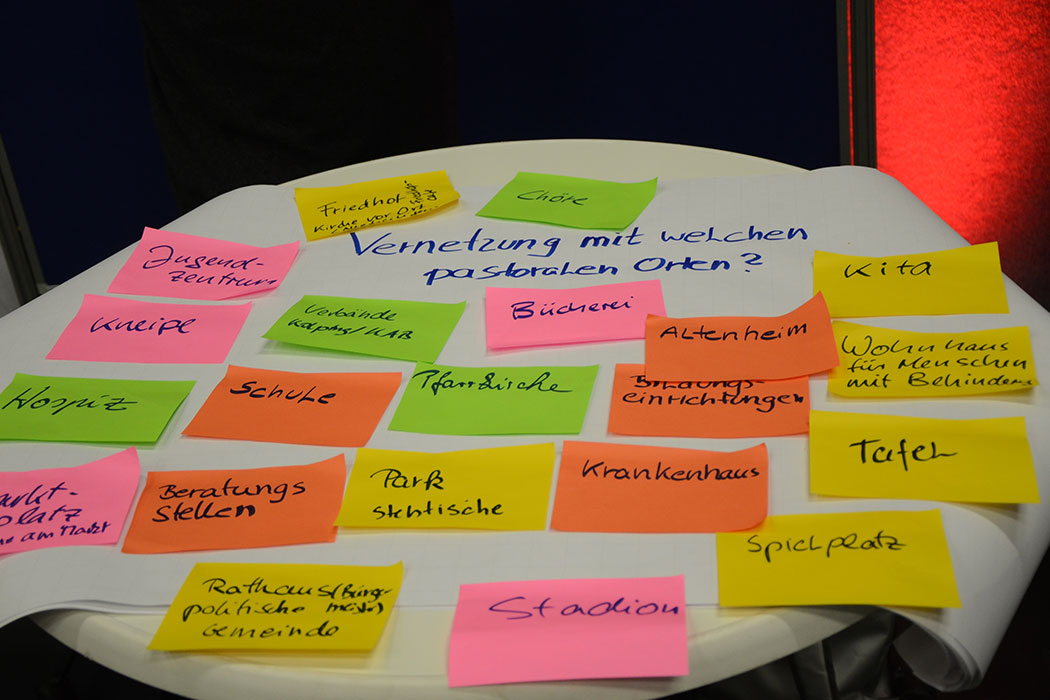 Friedhof
Kirche vor Ort
Chöre
Vernetzung mit welchen
pastoralen Orten?
Jugend-
zentrum
Kneipe
Verbände
Kolping/KAB
Bücherei
Altenheim
Kita
Wohnhaus
für Menschen
mit Behinderu
Hospiz
Schule
Pfarrkirche
Bildungs-
einrichtungen
Tafel
arkt-
platz
am Markt
Beratungs
stellen
Park
Krankenhaus
Spielplatz
Rathaus (Bürge-
politische meister)
Gemeinde
Stadion